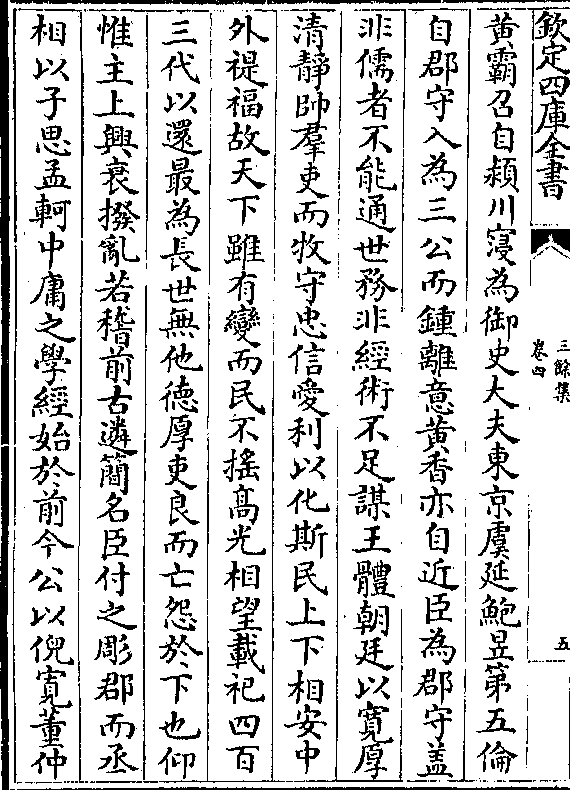 欽定四庫全書
三餘集
卷四
五
黄霸召自潁川寖為御史大夫東京虞延鮑昱第五倫
自郡守入為三公而鍾離意黄香亦自近臣為郡守盖
非儒者不能通世務非經術不足謀王體朝廷以寛厚
清靜帥羣吏而牧守忠信愛利以化斯民上下相安中
外禔福故天下雖有變而民不揺髙光相望載祀四百
三代以還最為長世無他徳厚吏良而亡怨於下也仰
惟主上興衰撥亂若稽前古遴簡名臣付之彫郡而丞
相以子思孟軻中庸之學經始於前今公以倪寛董仲